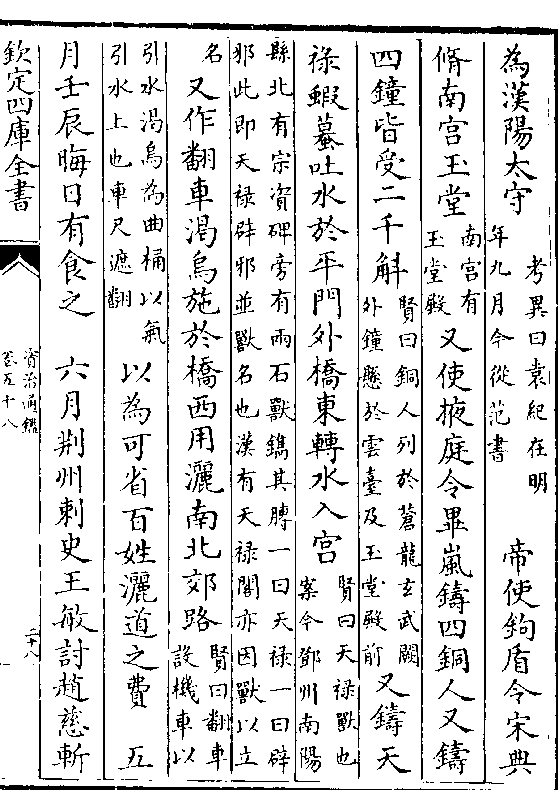 為漢陽太守
考異曰袁紀在明
年九月今從范書
帝使鉤盾令宋典
脩南宮玉堂
南宮有
玉堂殿
又使掖庭令畢嵐鑄四銅人又鑄
四鐘皆受二千斛
賢曰銅人列於蒼龍玄武闕
外鐘懸於雲臺及玉堂殿前
又鑄天
祿蝦蟇吐水於平門外橋東轉水入宮
賢曰天祿獸也
案今鄧州南陽
縣北有宗資碑旁有兩石獸鐫其膊一曰天祿一曰辟
邪此即天祿辟邪並獸名也漢有天祿閣亦因獸以立
名
又作翻車渴烏施於橋西用灑南北郊路
賢曰翻車
設機車以
引水渴烏為曲桶以氣
引水上也車尺遮翻
以為可省百姓灑道之費
五
月壬辰晦日有食之
六月荊州刺史王敏討趙慈斬
欽定四庫全書
資治通鑑
卷五十八
二十八